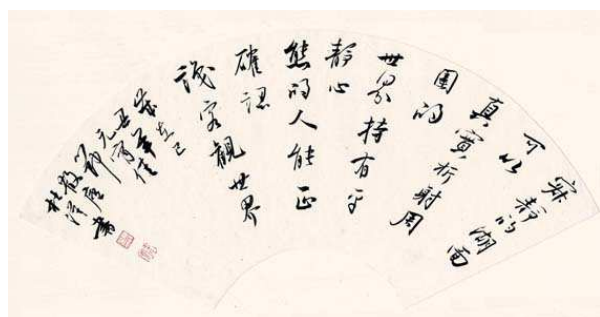 寂靜的湖面
可以
真實折射周
圍的
世界持有平
靜心
態的人能正
確認
識客觀世界
歲在己